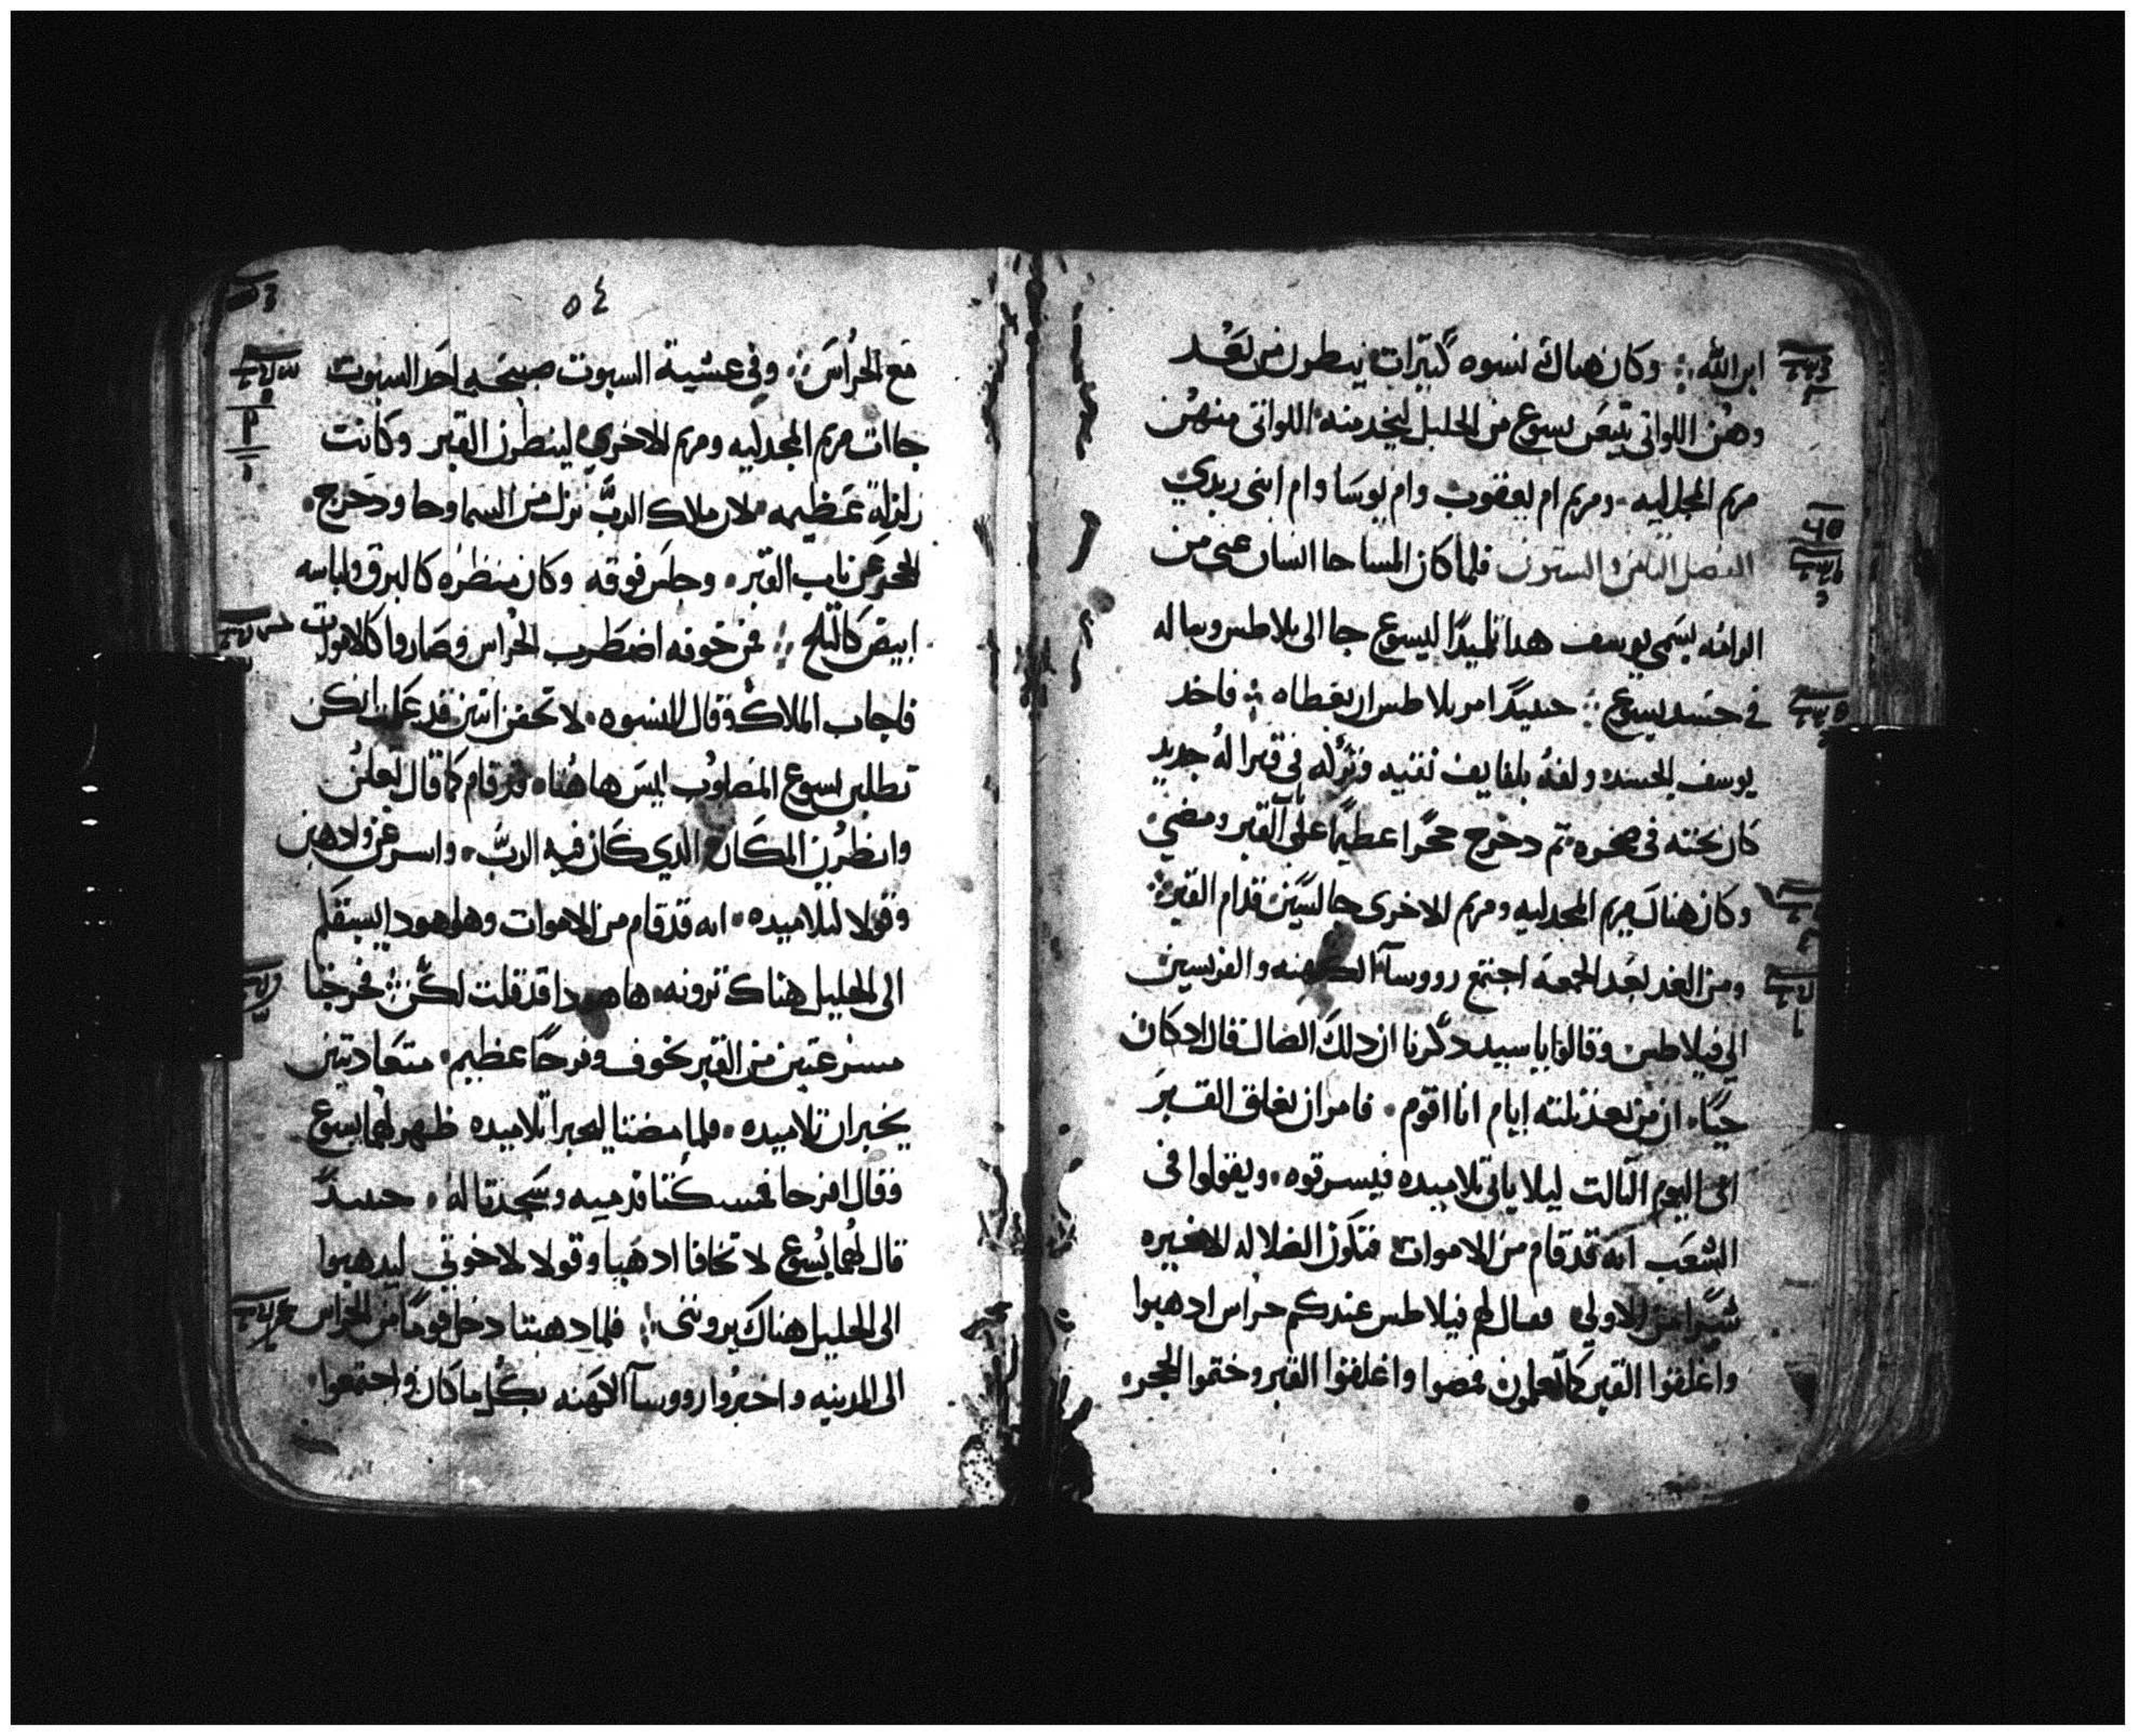 ابن الله ؛ وكان هناك نسوه كبيرات ينطرون من بعد
وهن اللواتي تبعن يسوع من الجليل ليخدمنه اللواتي منهن
مريم المجدليه ومريم ام يعقوب وام يوسا وام ابني زبدي
الفصل الثامن والستون فلما كان المسا جا انسان غني من
الرامه يسمي يوسف هدا تلميدا ليسوع جا الى بلاطس وساله
في جسد يسوع ؛ حينيدا امر بلاطس ان يعطاه ؛ فاخد
يوسف الجسد ولفه بلفايف نقيه وتركه في قبرا له جديد
كان نحته في صخره ثم دحرج حجرا عظيما على باب القبر ومضى
وكان هناك مريم المجدليه ومريم الاخرى جالستين قدام القبر
ومن الغد بعد الجمعة اجتمع رووسا الكهنه والفريسين
الى فيلاطس وقالوا يا سيد دكرنا ان دلك الضال قال اد كان
حيا ان من بعد ثلثه ايام انا اقوم فامر ان يغلق القبر
الى اليوم الثالث ليلا ياتي تلاميده فيسرقوه ويقولوا في
الشعب انه قد قام من الاموات فتكون الضلاله الاخيره
شرا من الاولي فقال لهم فيلاطس عندكم حراس ادهبوا
واغلقوا القبر كما تعلمون فمضوا واغلقوا القبر وختموا الحجر
٥٤
مع الحراس ؛ وفي عشية السبوت صبيحه احد السبوت
جاات مريم المجدليه ومريم الاخري لينطرن القبر وكانت
زلزلة عظيمه لان ملاك الرب نزل من السما وجا ودحرج
الحجر عن باب القبر وجلس فوقه وكان منظره كالبرق ولباسه
ابيض كالثلج ؛ فمن خوفه اضطرب الحراس وصاروا كالاموت
فاجاب الملاك وقال للنسوه لا تخفن انتن قد علمت انكن
تطلبن يسوع المصلوب ليس هاهنا قد قام كما قال تعلن
وانظرن المكان الدي كان فيه الرب واسرعن وادهبن
وقولا لتلاميده انه قد قام من الاموات وهاهودا يسبقكم
الى الجليل هناك ترونه هاهودا قد قلت لكن ؛ فخرجتا
مسرعتين من القبر بخوف وفرحا عظيم متعاديتين
يخبران تلاميده فلما مضتا ليخبرا تلاميده ظهر لهما يسوع
فقال افرحا فمسكتا قدميه وسجدتا له حينيدا
قال لهما يسوع لا تخافا ادهبا وقولا لاخوتي ليدهبوا
الى الجليل هناك يرونني ؛ فلما دهبتا دخل قوما من الحراس
الى المدينه واخبروا رووسا الكهنه بكل ما كان واجتمعوا